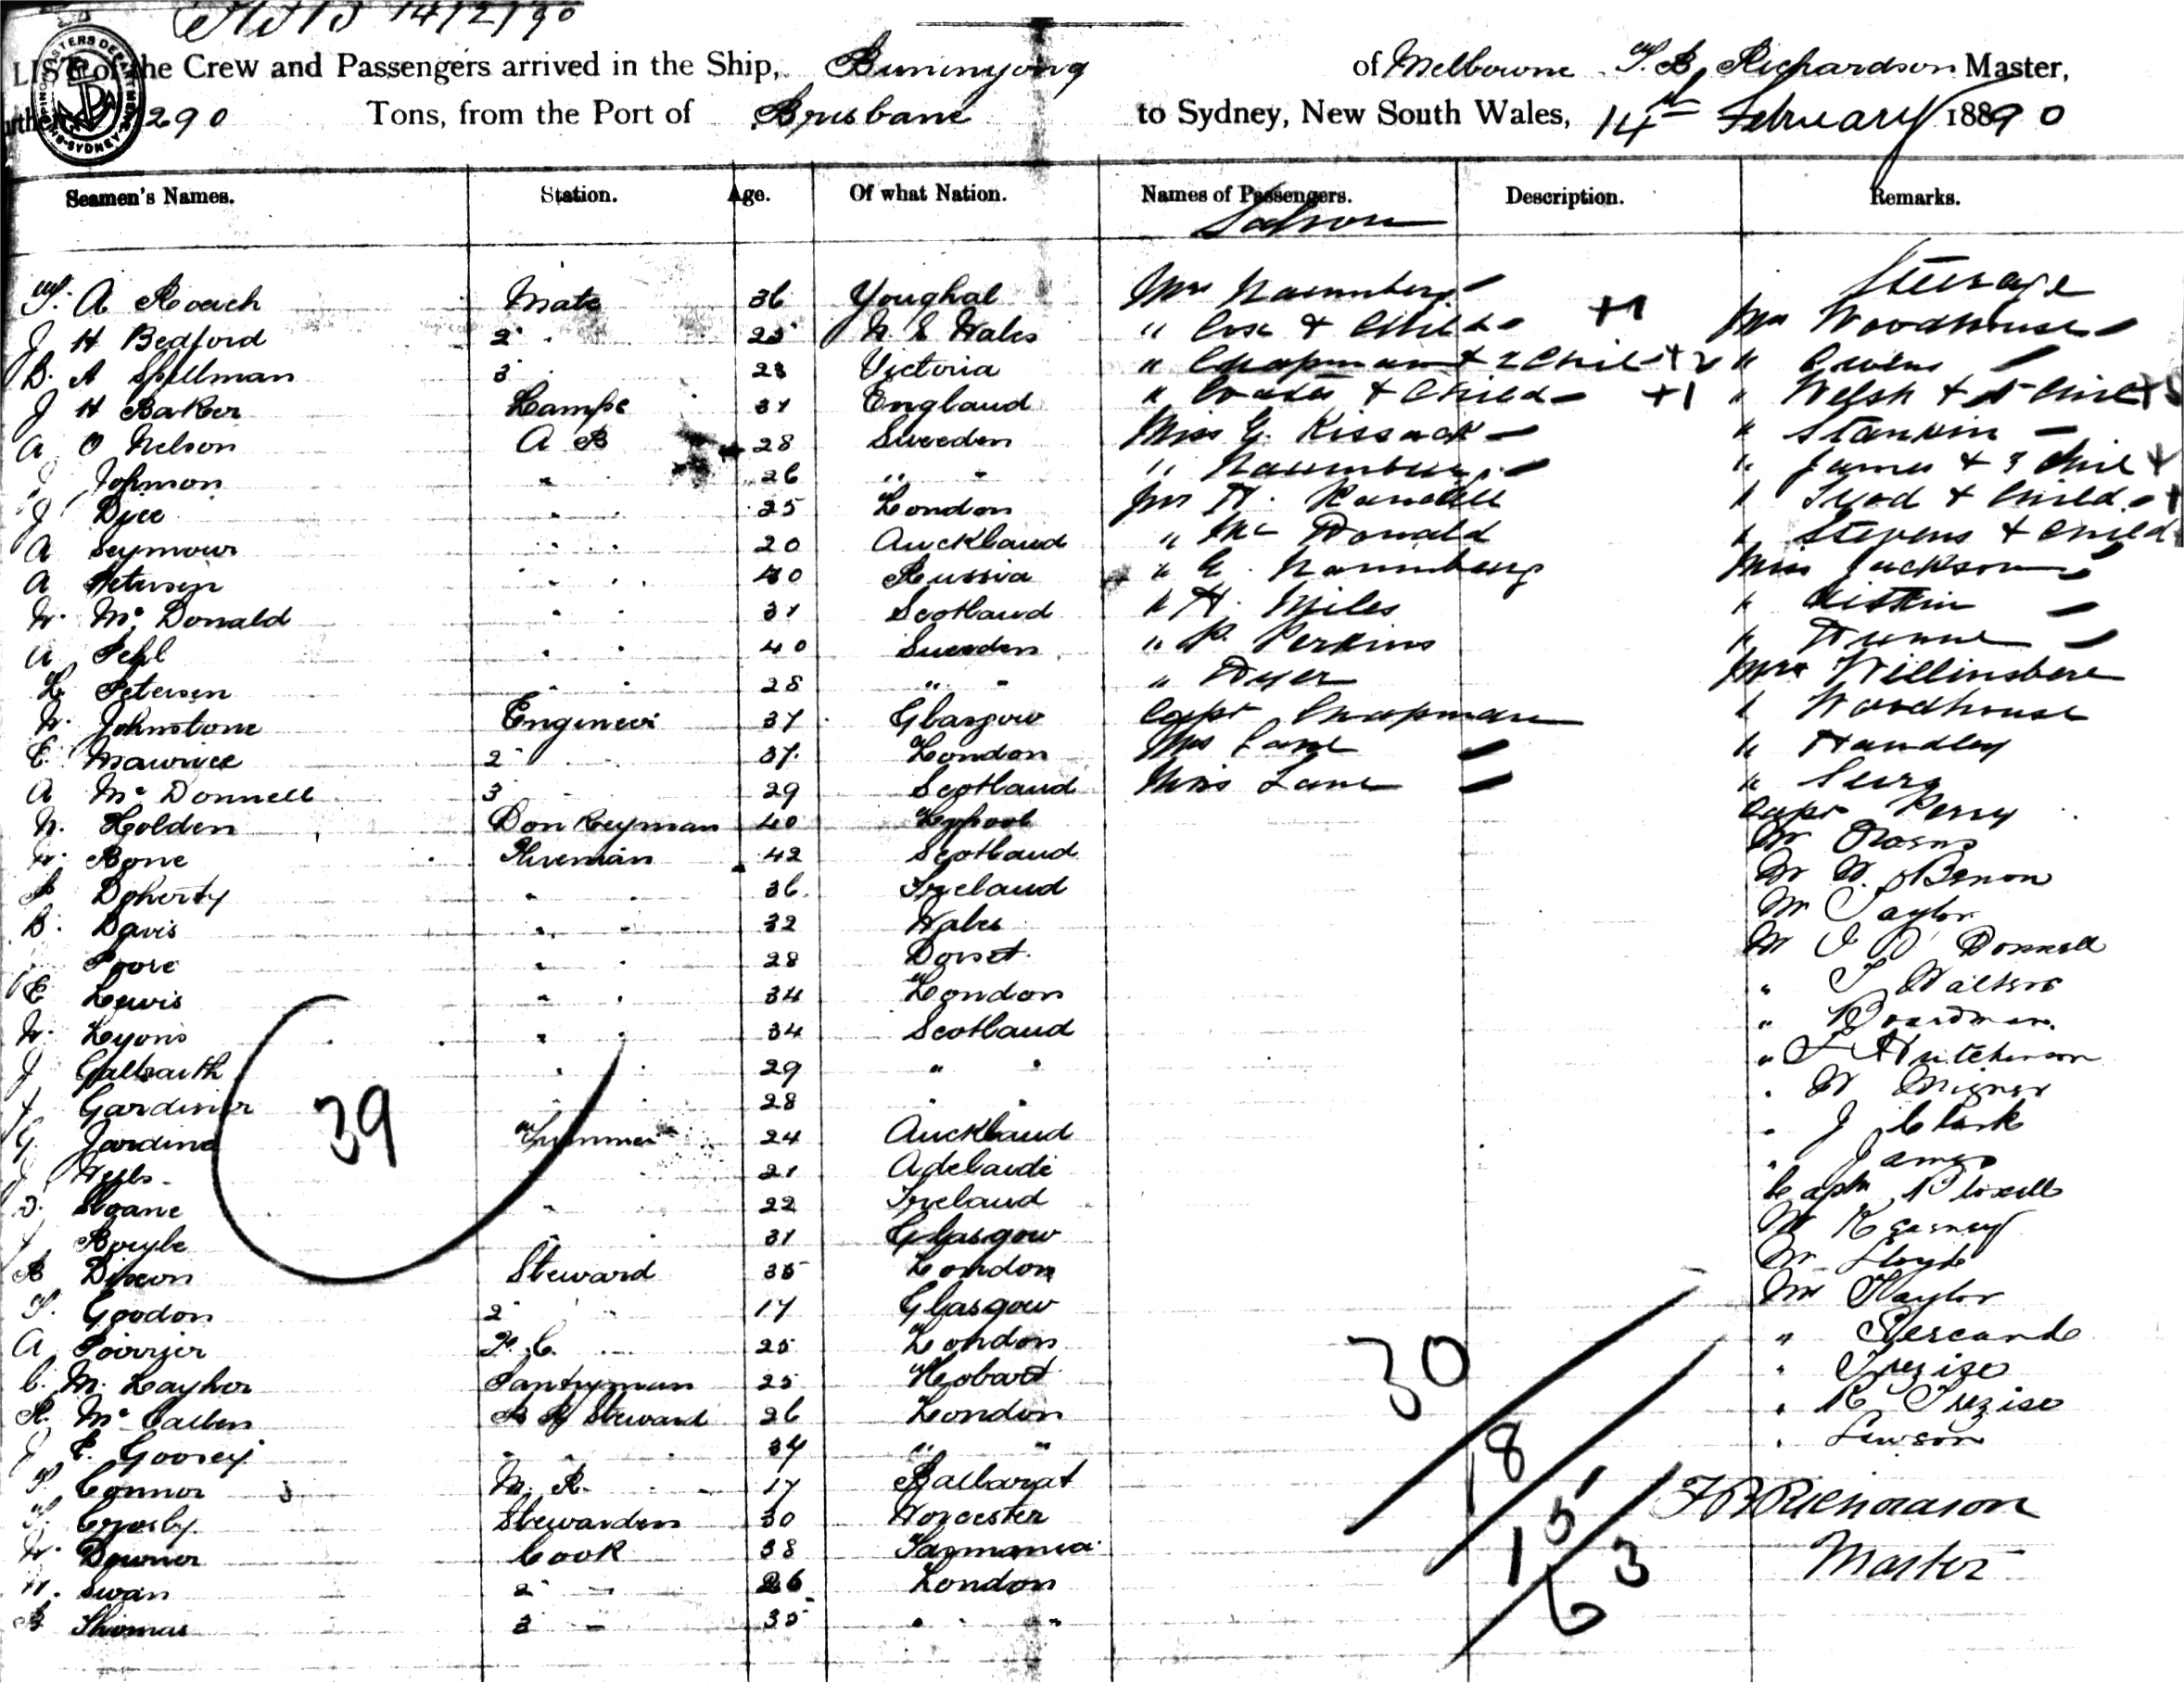 14/2/90
LIST of the Crew and Passengers arrived in the Ship, Buninyong of Melbourne T. B. Richardson Master,
290 Tons, from the Port of Brisbane to Sydney, New South Wales, 14th February 18890
Seamen's Names. Station. Age. Of what Nation. Names of Passengers. Description. Remarks.
Saloon
Steerage
T. A Roach Mate 36 Youghal Mrs Naumberg
J H Bedford 2 25 N. S Wales " Cox & Child +1 Mrs Woodhouse
B. A Spillman 3 23 Victoria " Chapman & 2 Chil +2 " Owens
J H Baker Lamps 31 England " Coates & Child +1 " Welsh & 5 Chil
A O Nelson A B 28 Sweden Miss G. Kissack "
Johnson " 26 " " " Naumberg " James & 3 Chil
J Dice " 25 London Mr H. Randell " & Child
A Seymour " 20 Auckland " Mc Donald " Stevens & Child
A Petersen " 40 Russia " E. Naumberg Miss Jackson
W. Mc Donald " 31 Scotland " H. Miles "
A Pehl " 40 Sweden " P. Perkins "
L Petersen " 28 " " " Dyer Mrs
W. Johnstone Engineer 37 Glasgow Capt Chapman " Woodhouse
E. Maurice 2 37 London Mrs Lane " Handley
A Mc Donnell 3 29 Scotland Miss Lane "
W. Holden Donkeyman 40 L'pool Capt Perry
W. Bone Fireman 42 Scotland Mr
P Doherty " 36 Ireland Mr W. Benon
B. Davis " 32 Wales Mr Taylor
Poore " 28 Dorset Mr J O'Donnell
E Lewis " 34 London " T Walters
W. Lyons " 34 Scotland " Boardman
J Galbraith " 29 " " " Hutchinson
J Gardiner " 28 " " " W
39
G. Jardine Trimmer 24 Auckland " J Clark
J Wells " 21 Adelaide " James
D. Sloane " 22 Ireland Captn Bloxell
J Boyle " 31 Glasgow Mr Kearney
B Dixon Steward 35 London Mr Lloyd
T. Goodon 2 17 Glasgow Mr Naylor
A Poirrier F. C. 25 London "
C. M. Layhor Pantryman 25 Hobart " Trezise
R. Mc Callen B R Steward 26 London " R Trezise
J E. Goosey " 34 " " " Lewson
T. Connor M. R. 17 Ballarat
T. Crosby Stewardess 30 Worcester
W. Downer Cook 38 Tasmania
H. Swan 2 26 London
B Thomas 3 35 " "
30
18
15
63
T B Richardson
Master